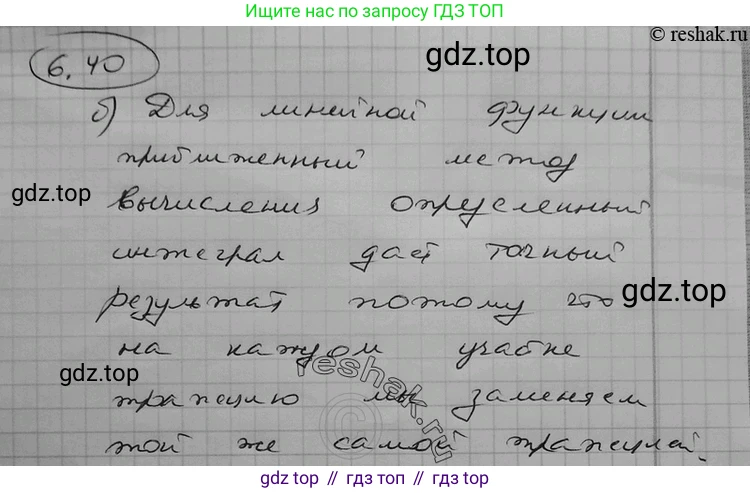 Ищите нас по запросу ГДЗ ТОП
© reshak.ru
6.40
gdz.top
б) Для линейной функции
приближенный метод
gdz.top
вычисления определенный
интеграл даст точный
gdz.top
результат потому что
на каждом участке
gdz.top
reshak.ru
трапецию мы заменяем
той же самой трапецией.
gdz.top // гдз топ // gdz.top // гдз топ // gdz.top